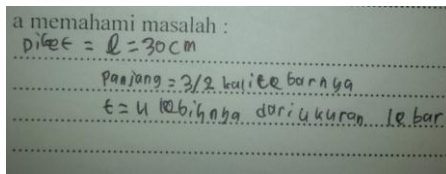 a memahami masalah :
Diket = l = 30 cm
Panjang = 3/2 kali lebarnya
t = 4 lebihnya dari ukuran lebar